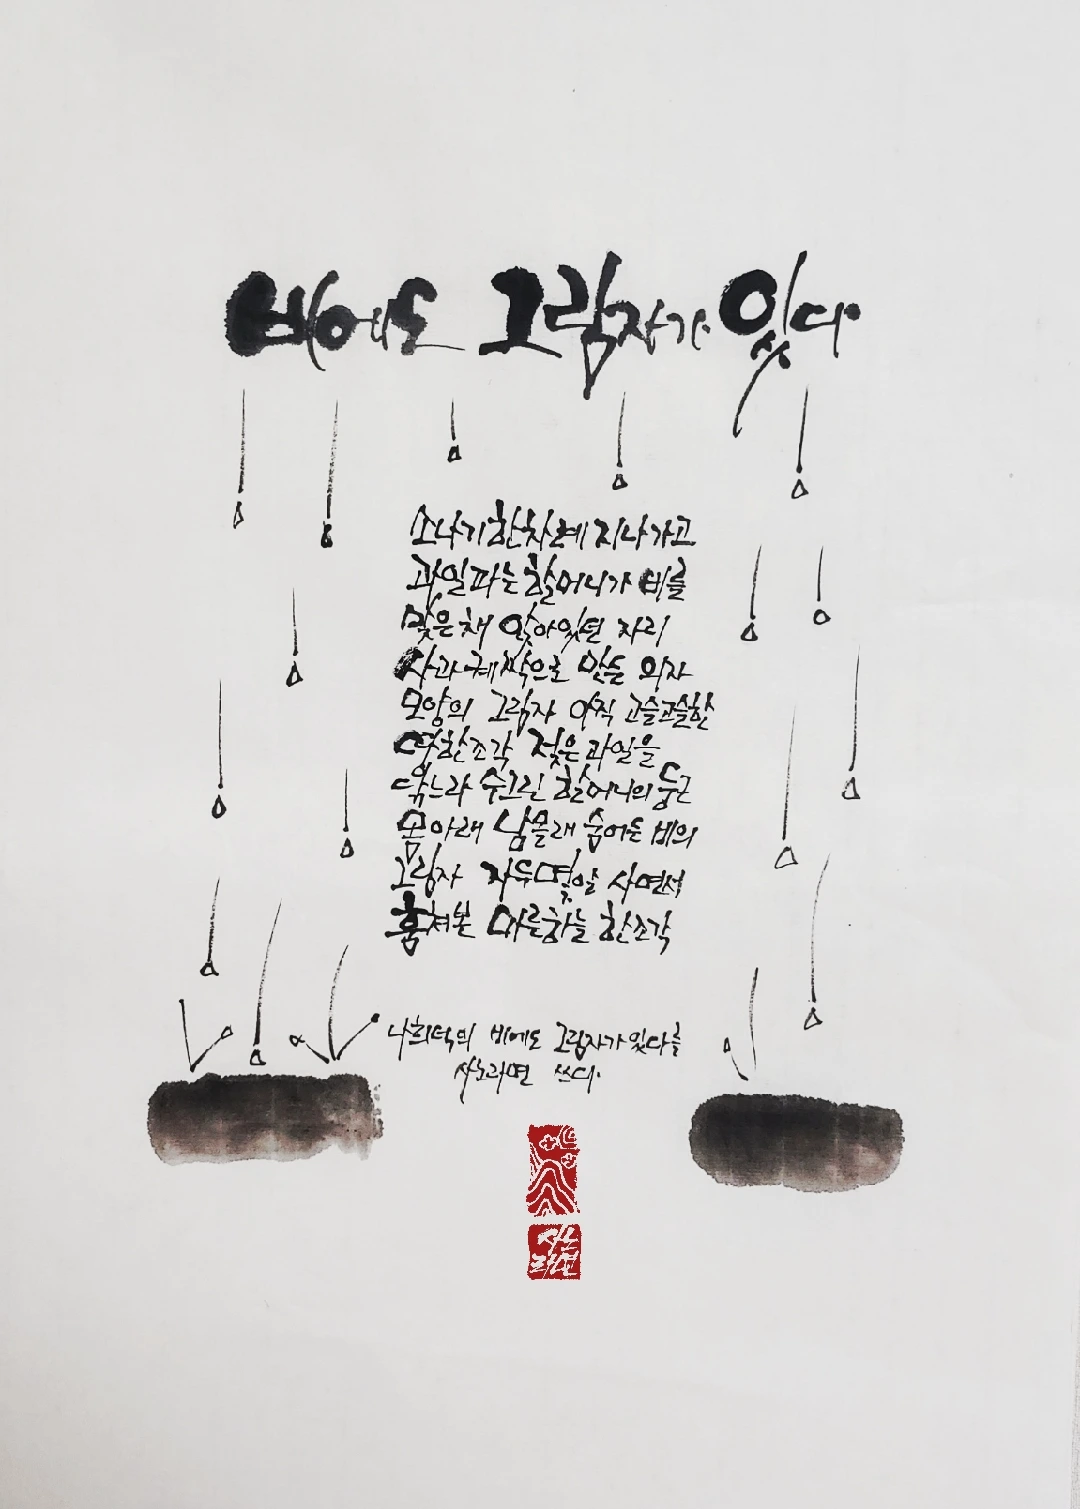 비에도 그림자가 있다
소나기 한차례 지나가고
과일 파는 할머니가 비를
맞은 채 앉아있던 자리
사과 궤짝으로 만든 의자
모양의 그림자 아직 고슬고슬한
땅 한조각 젖은 과일을
닦느라 수그린 할머니의 둥근
몸 아래 남몰래 숨어든 비의
그림자 자두 몇알 사면서
훔쳐본 마른하늘 한조각
나희덕의 비에도 그림자가 있다를
사노라면 쓰다.
사노
라면